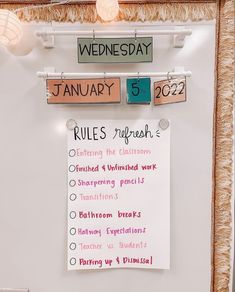 WEDNESDAY
JANUARY 5 2022
RULES refresh
Entering the Classroom
Finished & Unfinished work
Sharpening pencils
Transitions
Bathroom breaks
Hallway Expectations
Teacher vs. Students
Packing up & Dismissal